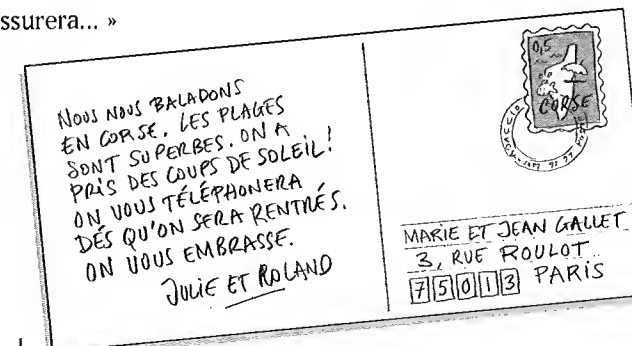 ssurera... »
NOUS NOUS BALADONS
EN CORSE. LES PLAGES
SONT SUPERBES. ON A
PRIS DES COUPS DE SOLEIL!
ON VOUS TÉLÉPHONERA
DÈS QU'ON SERA RENTRÉS.
ON VOUS EMBRASSE.
JULIE ET ROLAND
0,5
CORSE
MARIE ET JEAN GALLET
3, RUE ROULOT
75013 PARIS